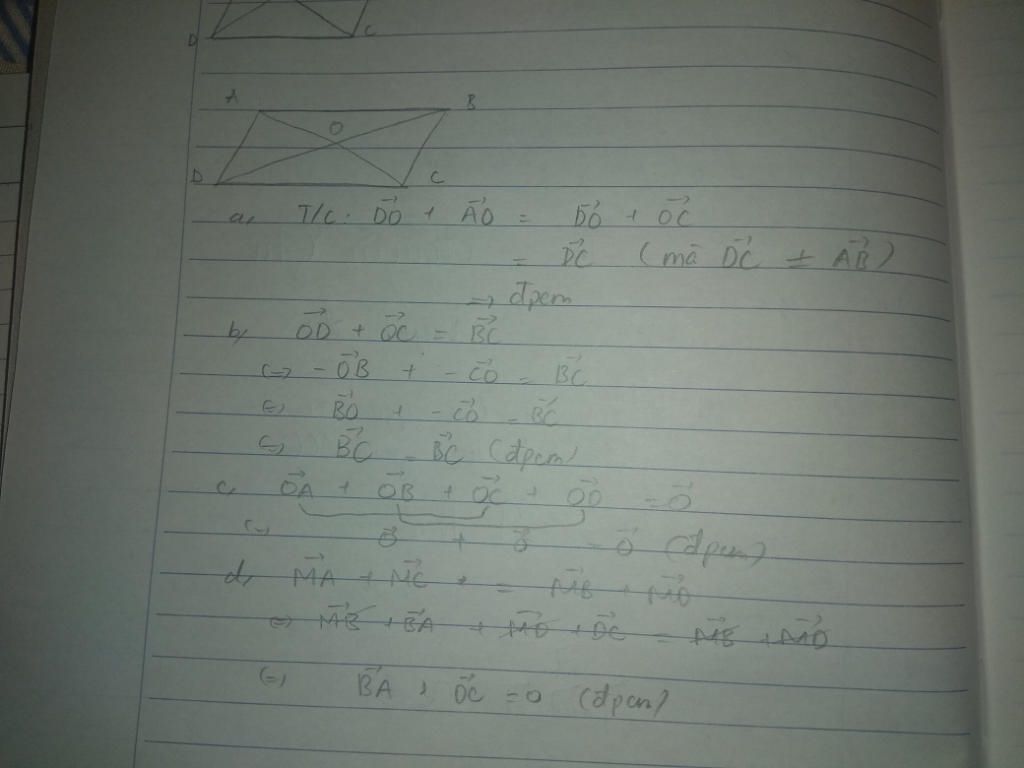 D C
A B
O
D C
a, T/c. DO→ + AO→ = DO→ + OC→
= DC→ (mà DC→ = AB→)
=> đpcm
b, OD→ + OC→ = BC→
<=> -OB→ + -CO→ = BC→
<=> BO→ + -CO→ = BC→
<=> BC→ = BC→ (đpcm)
c, OA→ + OB→ + OC→ + OD→ = O→
<=> O→ + O→ = O→ (đpcm)
d, MA→ + MC→ = MB→ + MD→
<=> MB→ + BA→ + MD→ + DC→ = MB→ + MD→
<=> BA→ + DC→ = 0 (đpcm)